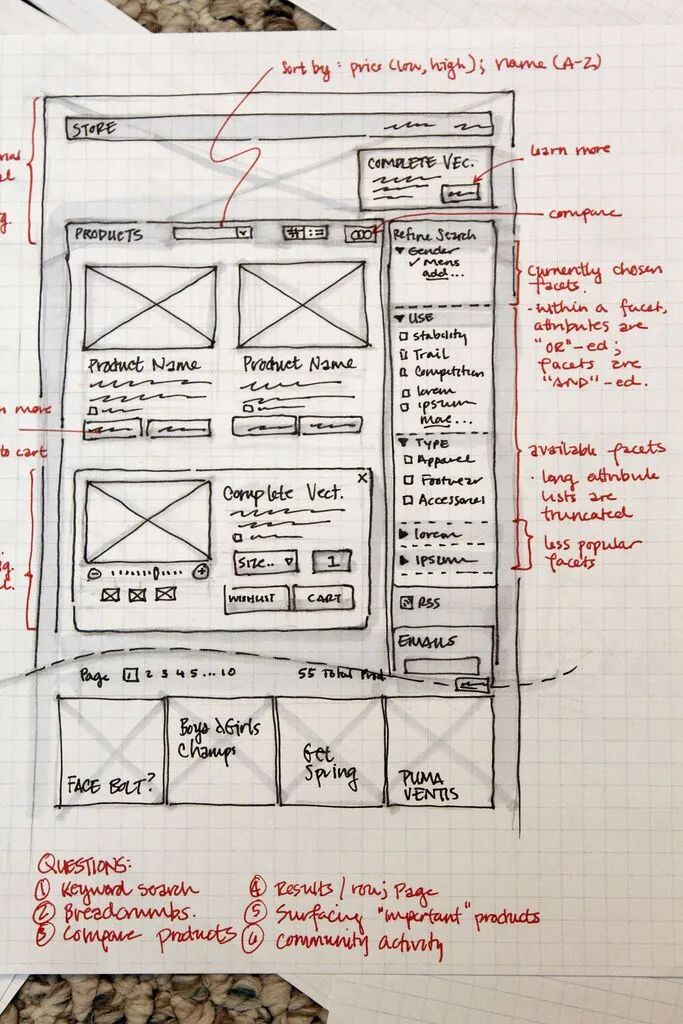 Sort by: price (low, high); name (A-Z)
STORE
COMPLETE VEC.
learn more
compare
PRODUCTS
Refine Search
Gender
✓ Mens
add...
currently chosen
facets.
- within a facet,
attributes are
"OR"-ed;
facets are
"AND"-ed.
USE
Stability
Trail
Competition
lorem
ipsum
more...
Product Name
Product Name
more
to cart
TYPE
Apparel
Footwear
Accessories
available facets
- long attribute
lists are
truncated
lorem
ipsum
less popular
facets
x
Complete Vect.
SIZE..
1
WISHLIST
CART
RSS
EMAILS
Page 1 2 3 4 5 ... 10
55 Total Prod
FACE BOLT?
Boys & Girls
Champs
Get
Spring
PUMA
VENTIS
QUESTIONS:
① Keyword search
② Breadcrumbs.
③ Compare products
④ Results / row; Page
⑤ Surfacing "important" products
⑥ Community activity